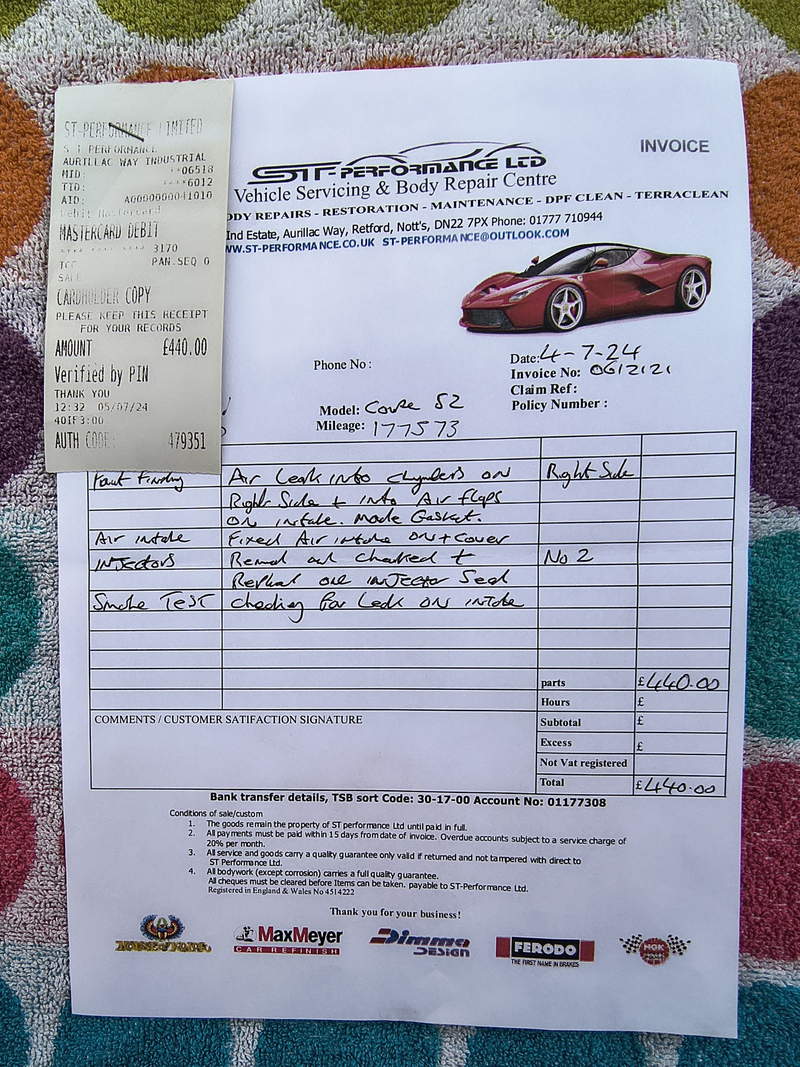 ST-PERFORMANCE LIMITED
S T PERFORMANCE
AURILLAC WAY INDUSTRIAL
MID: **06518
TID: ****6012
AID: A0000000041010
Debit Mastercard
MASTERCARD DEBIT
**** **** **** 3170
ICC PAN.SEQ 0
SALE
CARDHOLDER COPY
PLEASE KEEP THIS RECEIPT
FOR YOUR RECORDS
AMOUNT £440.00
Verified by PIN
THANK YOU
12:32 05/07/24
40IF3:00
AUTH CODE: 479351
INVOICE
ST-PERFORMANCE LTD
Vehicle Servicing & Body Repair Centre
ODY REPAIRS - RESTORATION - MAINTENANCE - DPF CLEAN - TERRACLEAN
Ind Estate, Aurillac Way, Retford, Nott's, DN22 7PX Phone: 01777 710944
WW.ST-PERFORMANCE.CO.UK ST-PERFORMANCE@OUTLOOK.COM
Phone No :
Date: 4-7-24
Invoice No: 0612121
Claim Ref :
Policy Number :
Model: Coupe S2
Mileage: 177573
Fault Finding Air Leak into cylynders on Right Side
Right Side + into Air flaps
on intake. Made Gasket.
Air intake Fixed Air intake on + cover
Injectors Remd out checked + No 2
Replaced one injector Seal
Smoke TEST checking for Leak on intake
parts £440.00
Hours £
Subtotal £
Excess £
Not Vat registered
Total £440.00
COMMENTS / CUSTOMER SATIFACTION SIGNATURE
Bank transfer details, TSB sort Code: 30-17-00 Account No: 01177308
Conditions of sale/custom
1. The goods remain the property of ST performance Ltd until paid in full.
2. All payments must be paid within 15 days from date of invoice. Overdue accounts subject to a service charge of
20% per month.
3. All service and goods carry a quality guarantee only valid if returned and not tampered with direct to
ST Performance Ltd.
4. All bodywork (except corrosion) carries a full quality guarantee.
All cheques must be cleared before Items can be taken. payable to ST-Performance Ltd.
Registered in England & Wales No 4514222
Thank you for your business!
HOUSE OF KOLOR
MaxMeyer
CAR REFINISH
Dimma
DESIGN
FERODO
THE FIRST NAME IN BRAKES
NGK